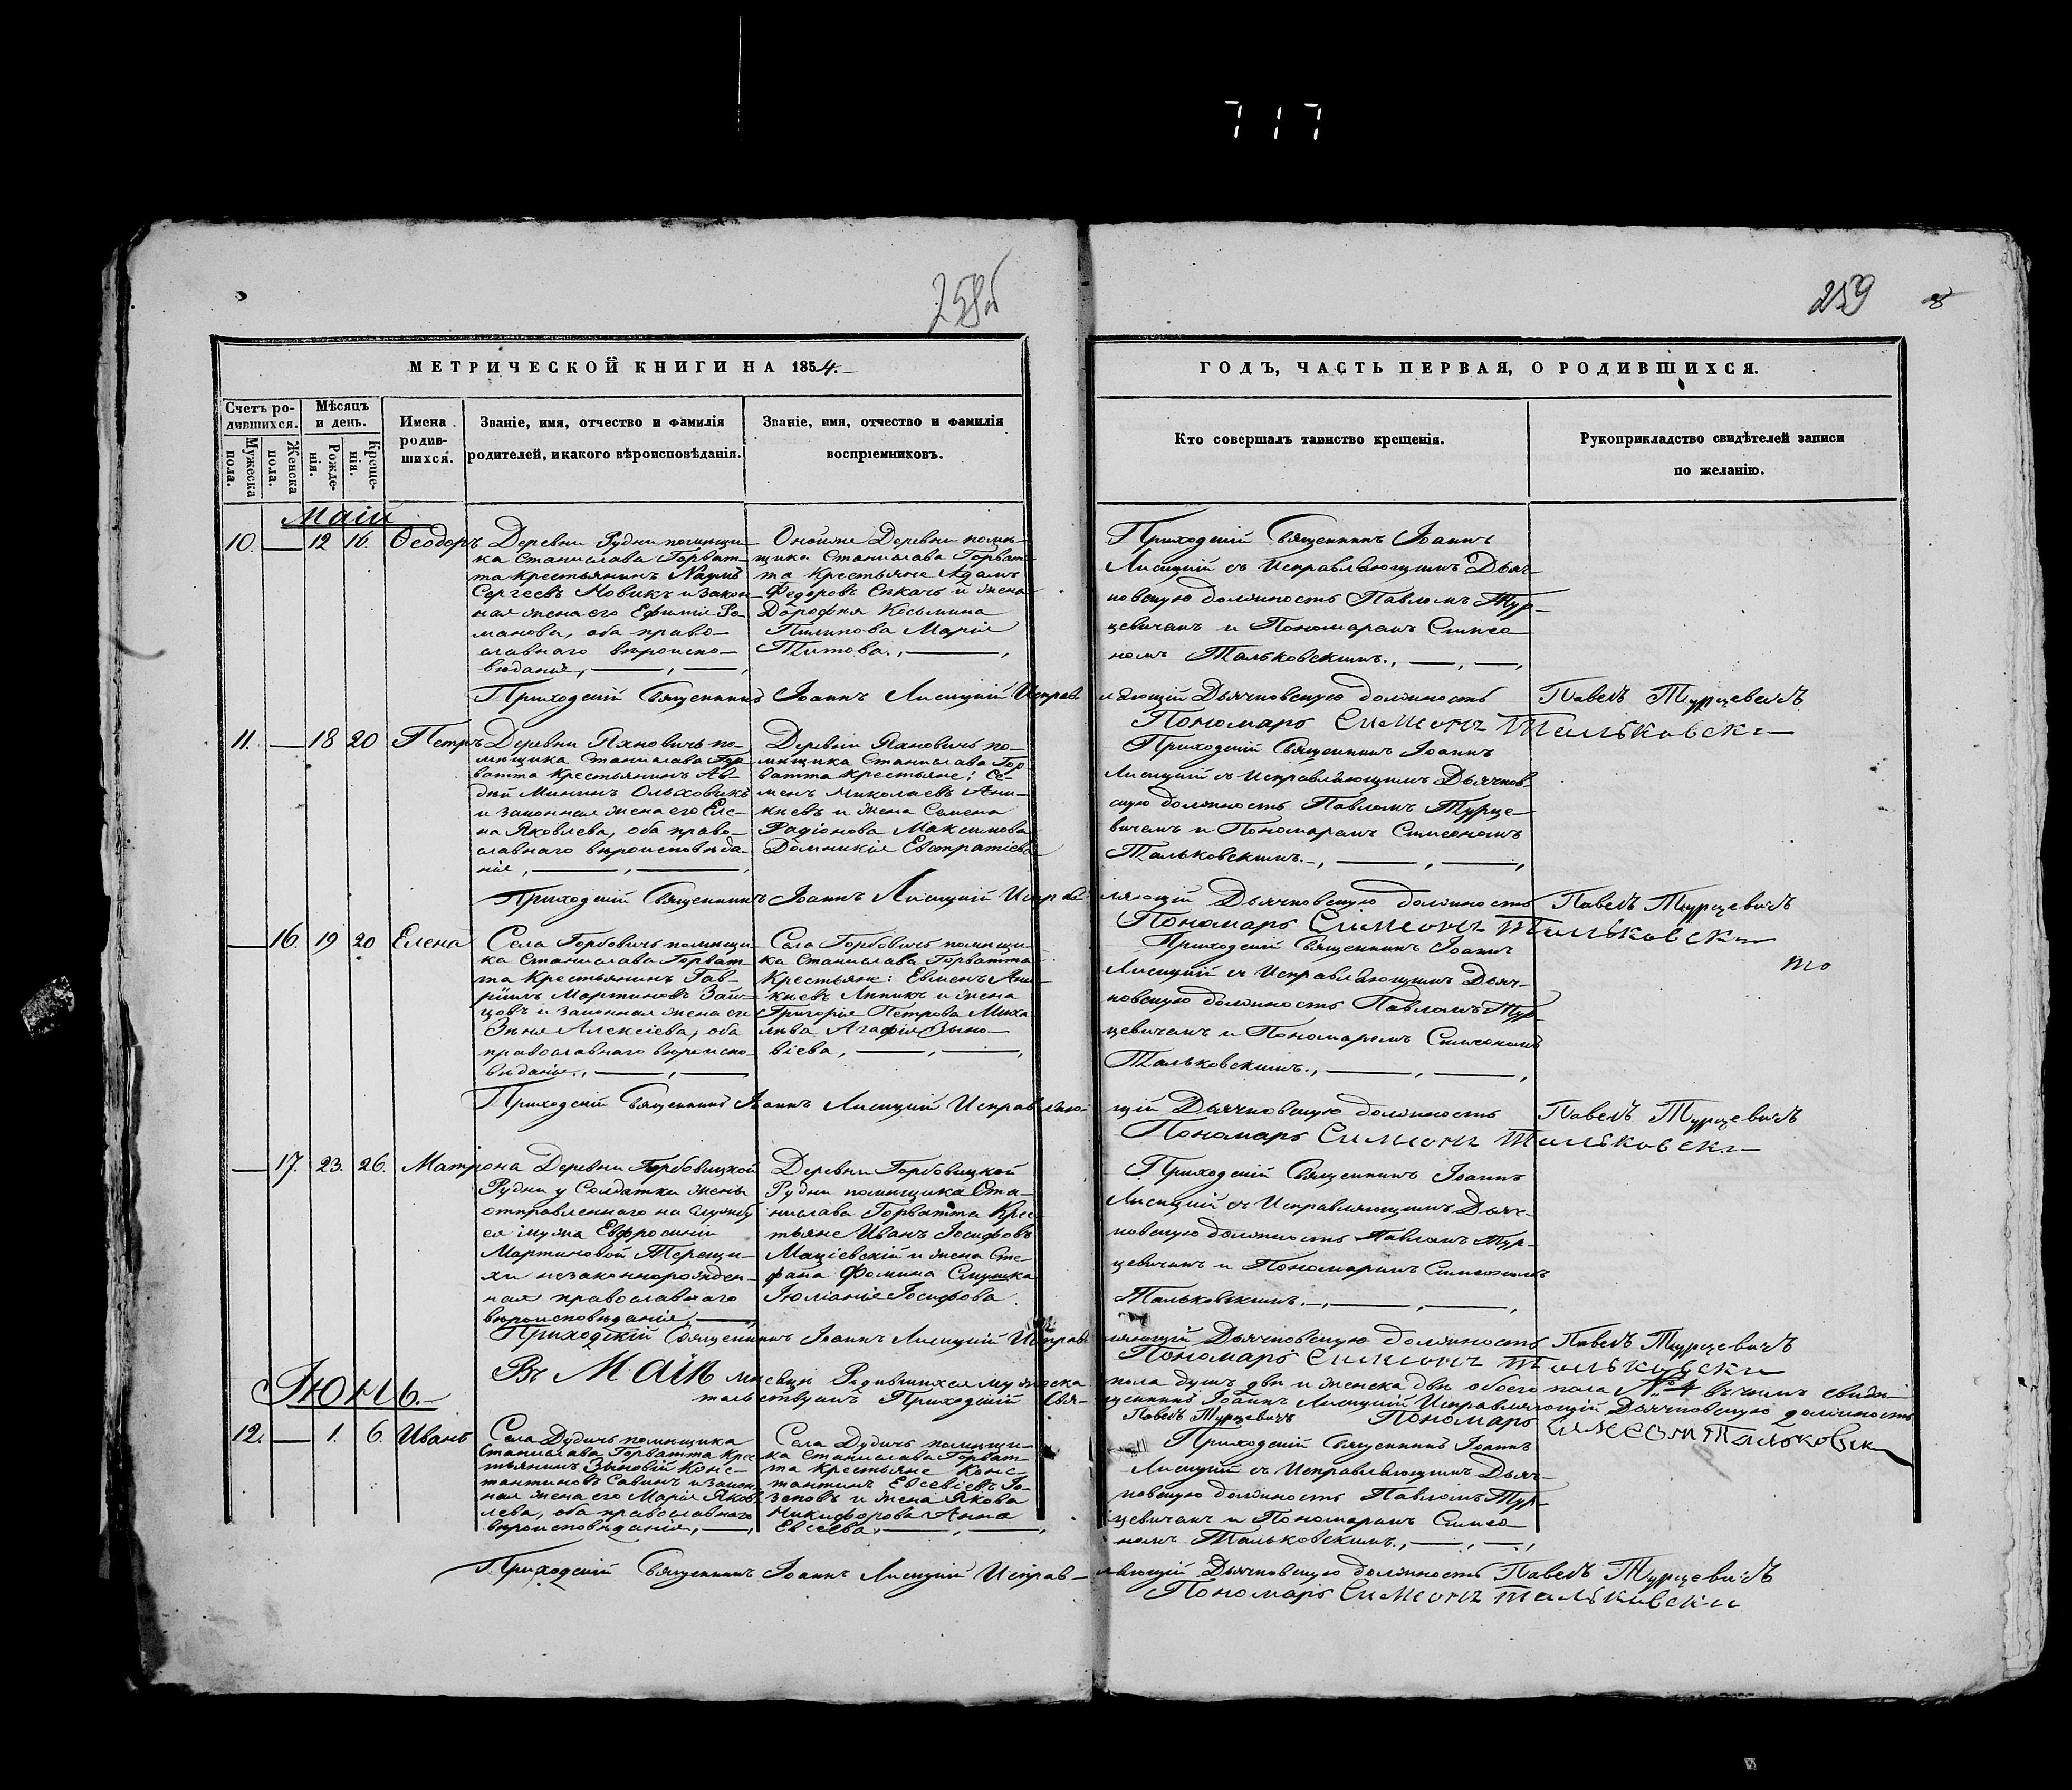 717
258об
259
8
МЕТРИЧЕСКОЙ КНИГИ НА 1854.
ГОДЪ, ЧАСТЬ ПЕРВАЯ, О РОДИВШИХСЯ.
Счетъ ро-
дившихся.
Мужеска пола.
Женска пола.
Мѣсяцъ
и день.
Рожде-
нія.
Креще-
нія.
Имена
родив-
шихся.
Званіе, имя, отчество и фамилія
родителей, и какого вѣроисповѣданія.
Званіе, имя, отчество и фамилія
воспріемниковъ.
Кто совершалъ таинство крещенія.
Рукоприкладство свидѣтелей записи
по желанію.
Маій
10. — 12 16. Ѳеодоръ
Деревни Рудни помѣщи-
ка Станислава Горват-
та крестьянинъ Наумъ
Сергеевъ Новикъ и закон-
ная жена его Ефимія За-
манова, оба право-
славнаго вѣроиспо-
вѣданія,
Оной же Деревни помѣ-
щика Станислава Горват-
та Крестьяне Адамъ
Федоровъ Сикачъ и жена
Дорофея Косьмина
Пилипова Марія
Титова.,
Приходскій Священникъ Іоаннъ
Лисицкій съ Исправляющимъ Дьяч-
ковскую должность Павломъ Тур-
цевичемъ и Пономаремъ Симео-
номъ Тальковскимъ.,
Приходскій Священникъ Іоаннъ Лисицкій Исправляющій Дьячковскую должность Павелъ Турцевичъ
Пономарь Симеонъ Тальковски
11. — 18 20 Петръ
Деревни Яхновичъ по-
мѣщика Станислава Гор-
ватта крестьянинъ Ав-
дѣй Мининъ Ольховикъ
и законная жена его Еле-
на Яковлева, оба право-
славнаго вѣроисповѣда-
нія,
Деревни Яхновичъ по-
мѣщика Станислава Гор-
ватта крестьяне: Се-
менъ Николаевъ Ани-
кіевъ и жена Семена
Радіонова Максимова
Домникія Евстратіева
Приходскій Священникъ Іоаннъ
Лисицкій съ Исправляющимъ Дьячков-
скую должность Павломъ Турце-
вичемъ и Пономаремъ Симеономъ
Тальковскимъ.
Приходскій Священникъ Іоаннъ Лисицкій Исправляющій Дьячковскую должность Павелъ Турцевичъ
Пономарь Симеонъ Тальковски
— 16. 19 20 Елена
Села Горбовичъ помѣщи-
ка Станислава Горват-
та Крестьянинъ Гав-
ріилъ Мартиновъ Зай-
цовъ и законная жена его
Алексіева, оба
православнаго вѣроиспо-
вѣданія.,
Села Горбовичъ помѣщи-
ка Станислава Горватта
Крестьяне: Евменъ Ани-
кіевъ Липикъ и жена
Григорія Петрова Миха-
лева Агафія Зыно-
віева,
Приходскій Священникъ Іоаннъ
Лисицкій съ Исправляющимъ Дьяч-
ковскую должность Павломъ Тур-
цевичемъ и Пономаремъ Симеономъ
Тальковскимъ.,
то
Приходскій Священникъ Іоаннъ Лисицкій Исправляющій Дьячковскую должность Павелъ Турцевичъ
Пономарь Симеонъ Тальковски
— 17. 23. 26. Матрона
Деревни Горбовицкой
Рудни у Солдатки жены
отправленнаго на службу
ея мужа Евфросиніи
Мартиновой Терещи-
хи незаконнорожден-
ная православнаго
вѣроисповѣданія,
Деревни Горбовицкой
Рудни помѣщика Ста-
нислава Горватта Крес-
тьяне Иванъ Іосифовъ
Маціевскій и жена Сте-
фана Фомина Смушка
Іюліанія Іосифова
Приходскій Священникъ Іоаннъ
Лисицкій съ Исправляющимъ Дьяч-
ковскую должность Павломъ Тур-
цевичемъ и Пономаремъ Симеономъ
Тальковскимъ.
Приходскій Священникъ Іоаннъ Лисицкій Исправляющій Дьячковскую должность Павелъ Турцевичъ
Пономарь Симеонъ Тальковски
Въ Маіѣ мѣсяцѣ Родившихся мужеска пола душъ двѣ и женска двѣ обоего пола № 4 въ чемъ свидѣ-
тельствуемъ Приходскій Свя-щенникъ Іоаннъ Лисицкій Исправляющій Дьячковскую должность
Павелъ Турцевичъ Пономарь Симеонъ Тальковски
Іюнь.
12. — 1. 6. Иванъ
Села Дудичъ помѣщика
Станислава Горватта Крес-
тьянинъ Зыновій Конс-
тантиновъ Савинъ и закон-
ная жена его Марія Яков-
лева, оба православнаго
вѣроисповѣданія,
Села Дудичъ помѣщи-
ка Станислава Горват-
та крестьяне Конс-
тантинъ Евсевіевъ Іо-
зеповъ и жена Якова
Никифорова Анна
Евсеева,
Приходскій Священникъ Іоаннъ
Лисицкій съ Исправляющимъ Дьяч-
ковскую должность Павломъ Тур-
цевичемъ и Пономаремъ Симео-
номъ Тальковскимъ.,
Приходскій Священникъ Іоаннъ Лисицкій Исправ-ляющій Дьячковскую должность Павелъ Турцевичъ
Пономарь Симеонъ Тальковски